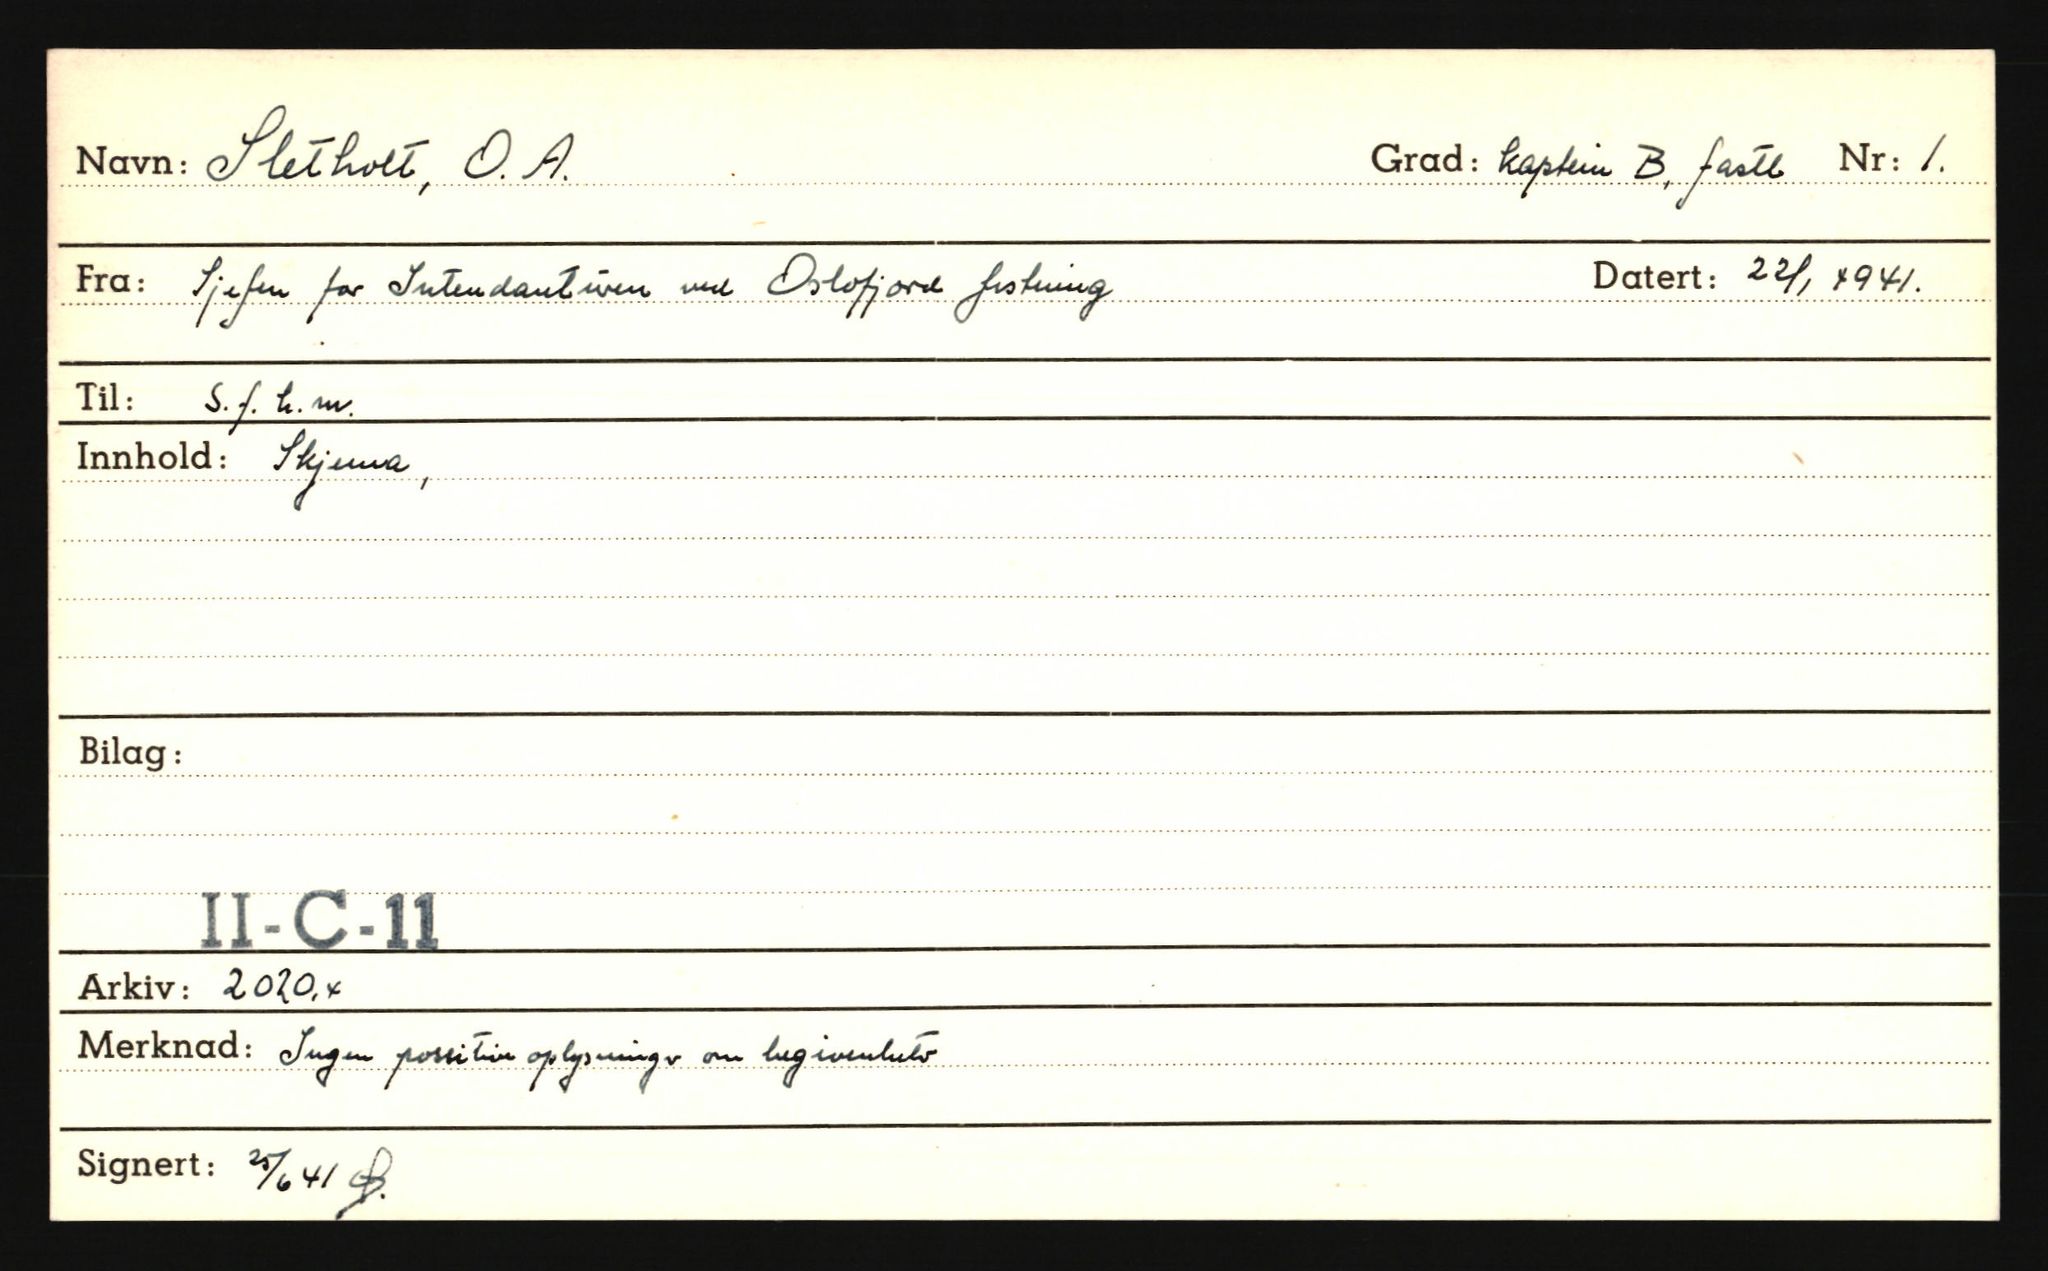 Navn: Sletholt, O. A. Grad: kaptein B, fastl Nr: 1.
Fra: Sjefen for Intendanturen ved Oslofjord festning Datert: 22/1 1941.
Til: S. f. h. m.
Innhold: Skjema,
Bilag:
II-C-11
Arkiv: 2020.x
Merknad: Ingen possitive oplysninger om begivenheter
Signert: 25/6 41